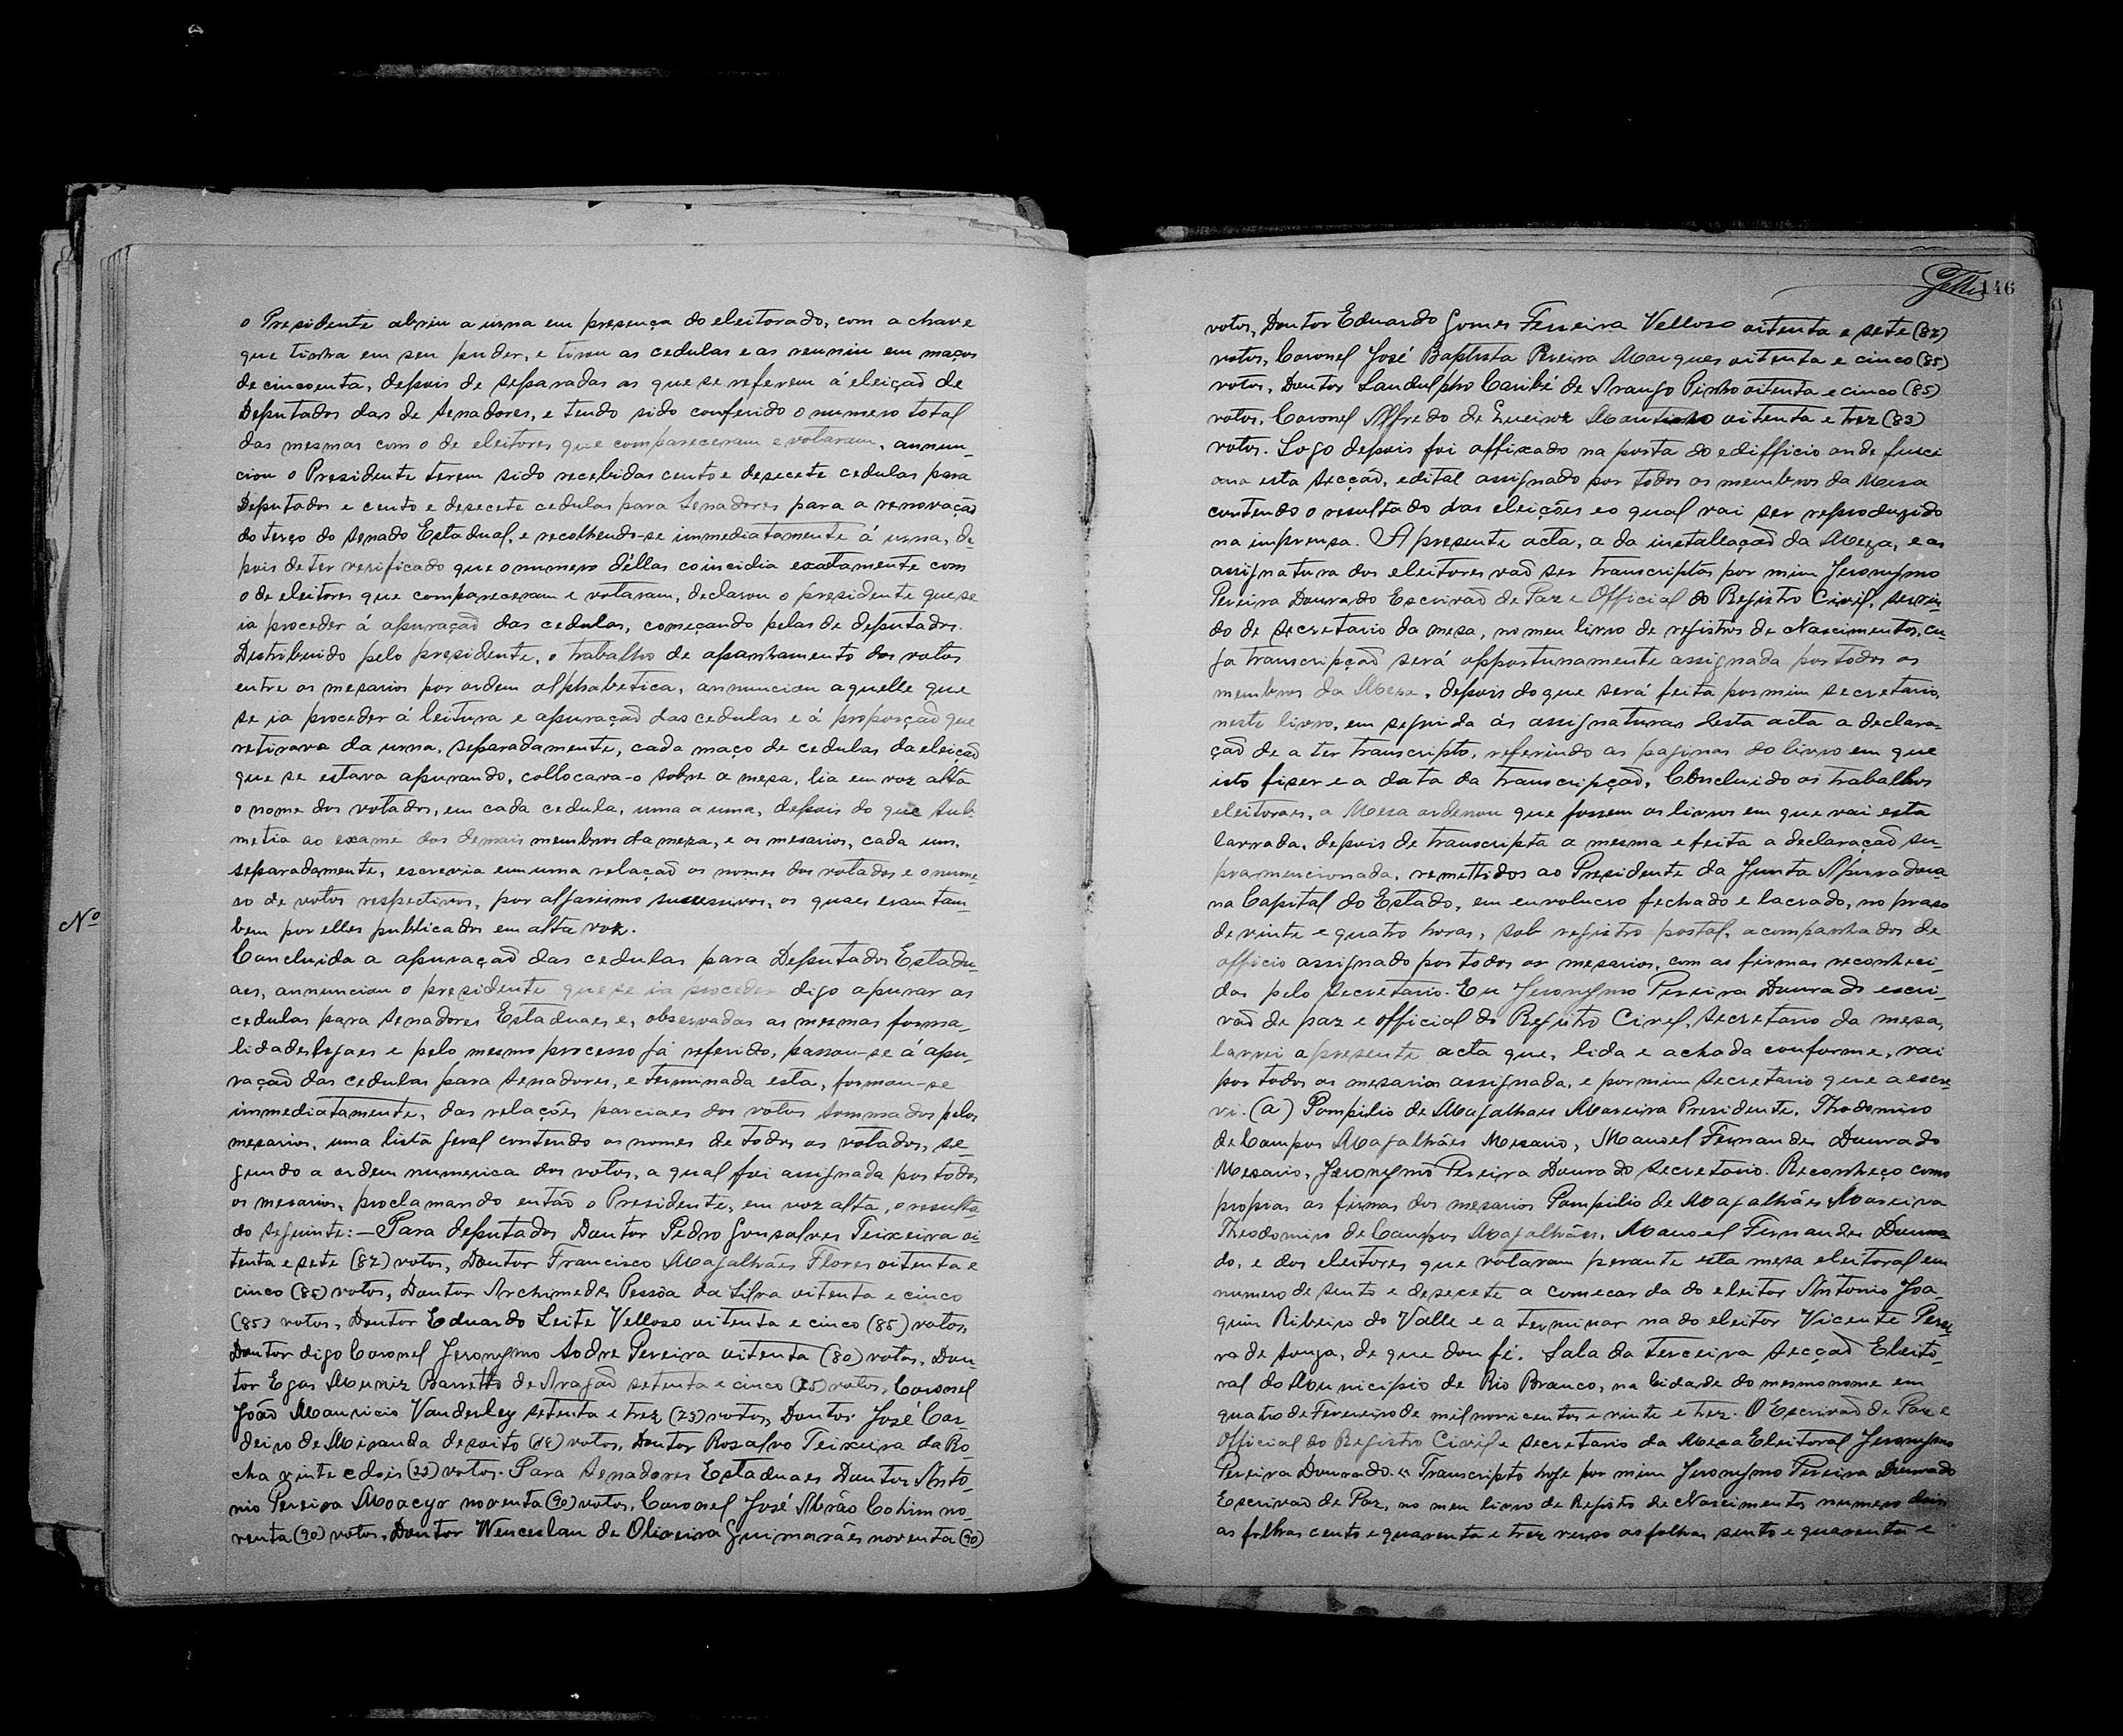 o Presidente abriu a urna em presença do eleitorado, com a chave
que tinha em seu puder, e tirou as cedulas e as reuniu em maços
de cincoenta, depois de separadas as que se referem á eleiçaõ de
Deputados das de Senadores, e tendo sido conferido o numero total
das mesmas com o de eleitores que compareceram e votaram, annun-
ciou o Presidente terem sido recebidas cento e desecete cedulas para
Deputados e cento e desecete cedulas para Senadores para a renovaçaõ
do terço do Senado Estadual, e recolhendo-se immediatamente á urna, de-
pois de ter verificado que o numero d'éllas coincidia exatamente com
o de eleitores que compareceram e votaram, declarou o presidente que se
ia proceder á apuraçaõ das cedulas, começando pelas de deputados.
Destribuido pelo presidente, o trabalho de apanhamento dos votos
entre os mesarios por ordem alphabetica, annunciou aquelle que
se ia proceder á leitura e apuraçaõ das cedulas e á proporçaõ que
retirava da urna, separadamente, cada maço de cedulas da eleiçaõ
que se estava apurando, collocava-o sobre a mesa, lia em voz alta
o nome dos votados, em cada cedula, uma a uma, depois do que sub-
metia ao exame dos demais membros da meza, e os mesarios, cada um,
separadamente, escrevia em uma relaçaõ os nomes dos votados e o nume-
ro de votos respectivos, por algarismo sucessivos, os quaes eram tam-
bem por elles publicados em alta voz.
Concluida a apuraçaõ das cedulas para Deputados Estadu-
aes, annunciou o presidente que se ia proceder digo apurar as
cedulas para Senadores Estaduaes e, observadas as mesmas forma-
lidades legaes e pelo mesmo processo já referido, passou-se á apu-
raçaõ das cedulas para Senadores, e terminada esta, formou-se
immediatamente, das relações parciaes dos votos sommados pelos
mesarios, uma lista geral contendo os nomes de todos os votados, se-
gundo a ordem numerica dos votos, a qual foi assignada por todos
os mesarios, proclamando então o Presidente, em voz alta, o resulta-
do seguinte:—Para deputados Doutor Pedro Gonsalves Teixeira oi-
tenta e sete (87) votos, Doutor Francisco Magalhães Flores oitenta e
cinco (85) votos, Doutor Archimedes Pessôa da Silva oitenta e cinco
(85) votos, Doutor Eduardo Leite Velloso oitenta e cinco (85) votos,
Doutor digo Coronel Jeronymo Sodre Pereira oitenta (80) votos, Dou-
tor Egas Muniz Barretto de Aragaõ setenta e cinco (75) votos, Coronel
João Mauricio Vanderley setenta e trez (73) votos, Doutor José Cor-
deiro de Miranda desoito (18) votos, Doutor Rosalvo Teixeira da Ro-
cha vinte e dois (22) votos. Para Senadores Estaduaes Doutor Anto-
nio Pereira Moacyr noventa (90) votos, Coronel José Abrão Cohim no-
venta (90) votos, Doutor Wenceslau de Oliveira Guimarães noventa (90)
146
votos, Doutor Eduardo Gomes Ferreira Velloso oitenta e sete (87)
votos, Coronel José Baptista Pereira Marques oitenta e cinco (85)
votos, Doutor Landulpho Caribé de Araujo Pinho oitenta e cinco (85)
votos, Coronel Alfredo de Queiroz Monteiro oitenta e trez (83)
votos. Logo depois foi affixado na porta do edifficio onde funci
ona esta secçaõ, edital assignado por todos os membros da Mesa
contendo o resultado das eleições e o qual vai ser reproduzido
na imprensa. A presente acta, a da installaçaõ da Meza, e as
assignatura dos eleitores vaõ ser transcriptos por mim Jeronymo
Pereira Dourado Escrivaõ de Paz e Official do Registro Civil, servin-
do de secretario da mesa, no meu livro de registros de Nascimentos, cu-
ja transcripçaõ será opportunamente assignada por todos os
membros da Mesa, depois do que será feita por mim secretario,
neste livro, em seguida ás assignaturas desta acta a declara-
çaõ de a ter transcripto, referindo as paginas do livro em que
isto fizer e a data da transcripçaõ, Concluido os trabalhos
eleitoraes, a Mesa ordenou que fossem os livros em que vai esta
lavrada, depois de transcripta a mesma e feita a declaraçaõ su-
pra mencionada, remettidos ao Presidente da Junta Apuradora
na Capital do Estado, em envolucro fechado e lacrado, no praso
de vinte e quatro horas, sob registro postal, acompanhados de
officio assignado por todos os mesarios, com as firmas reconheci-
das pelo secretario. Eu Jeronymo Pereira Dourado escri-
vaõ de paz e official do Registro Civel, secretario da mesa,
lavrei a presente acta que, lida e achada conforme, vai
por todos os mesarios assignada, e por mim secretario que a escre-
vi. (a) Pompilio de Magalhaes Moreira Presidente, Thodomiro
de Campos Magalhães Mesario, Manoel Fernandes Dourado
Mesario, Jeronymo Pereira Dourado secretario. Reconheço como
proprias as firmas dos mesarios Pompilio de Magalhães Moreira
Theodomiro de Campos Magalhães, Manoel Fernandes Doura-
do, e dos eleitores que votaram perante esta mesa eleitoral em
numero de sento e desecete a comecar da do eleitor Antonio Joa-
quim Ribeiro do Valle e a terminar na do eleitor Vicente Perei-
ra de Souza, de que dou fé. Sala da terceira secçaõ Eleito-
ral do Municipio de Rio Branco, na Cidade do mesmo nome em
quatro de Fevereiro de mil novicentos e vinte e trez. O Escrivaõ de Paz e
Official do Registro Civil e secretario da Mesa Eleitoral Jeronymo
Pereira Dourado. « Transcripto hoje por mim Jeronymo Pereira Dourado
Escrivaõ de Paz, no meu livro de Registo de Nascimentos numero dois
as folhas cento e quarenta e trez verso as folhas sento e quarenta e
Nº